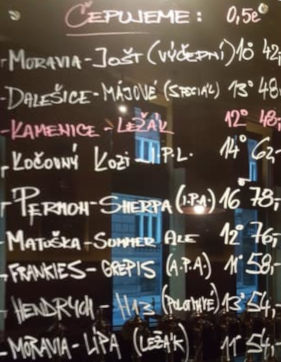 ČEPUJEME: 0,5e
-MORAVIA-JOŠT (VÝČEPNÍ) 10° 42,-
-DALEŠICE-MÁJOVÉ (SPECIÁL) 13° 48,-
-KAMENICE-LEŽÁK 12° 48,-
-KOČOVNÝ KOZI I.P.L. 14° 62,-
-PERMON-SHERPA (I.P.A.) 16° 78,-
-MATUŠKA-SUMMER ALE 12° 76,-
-FRANKIES-GREPIS (A.P.A.) 11° 58,-
-HENDRYCH-H13 (POLOTMAVÉ) 13° 54,-
-MORAVIA-LÍPA (LEŽÁK) 11° 54,-